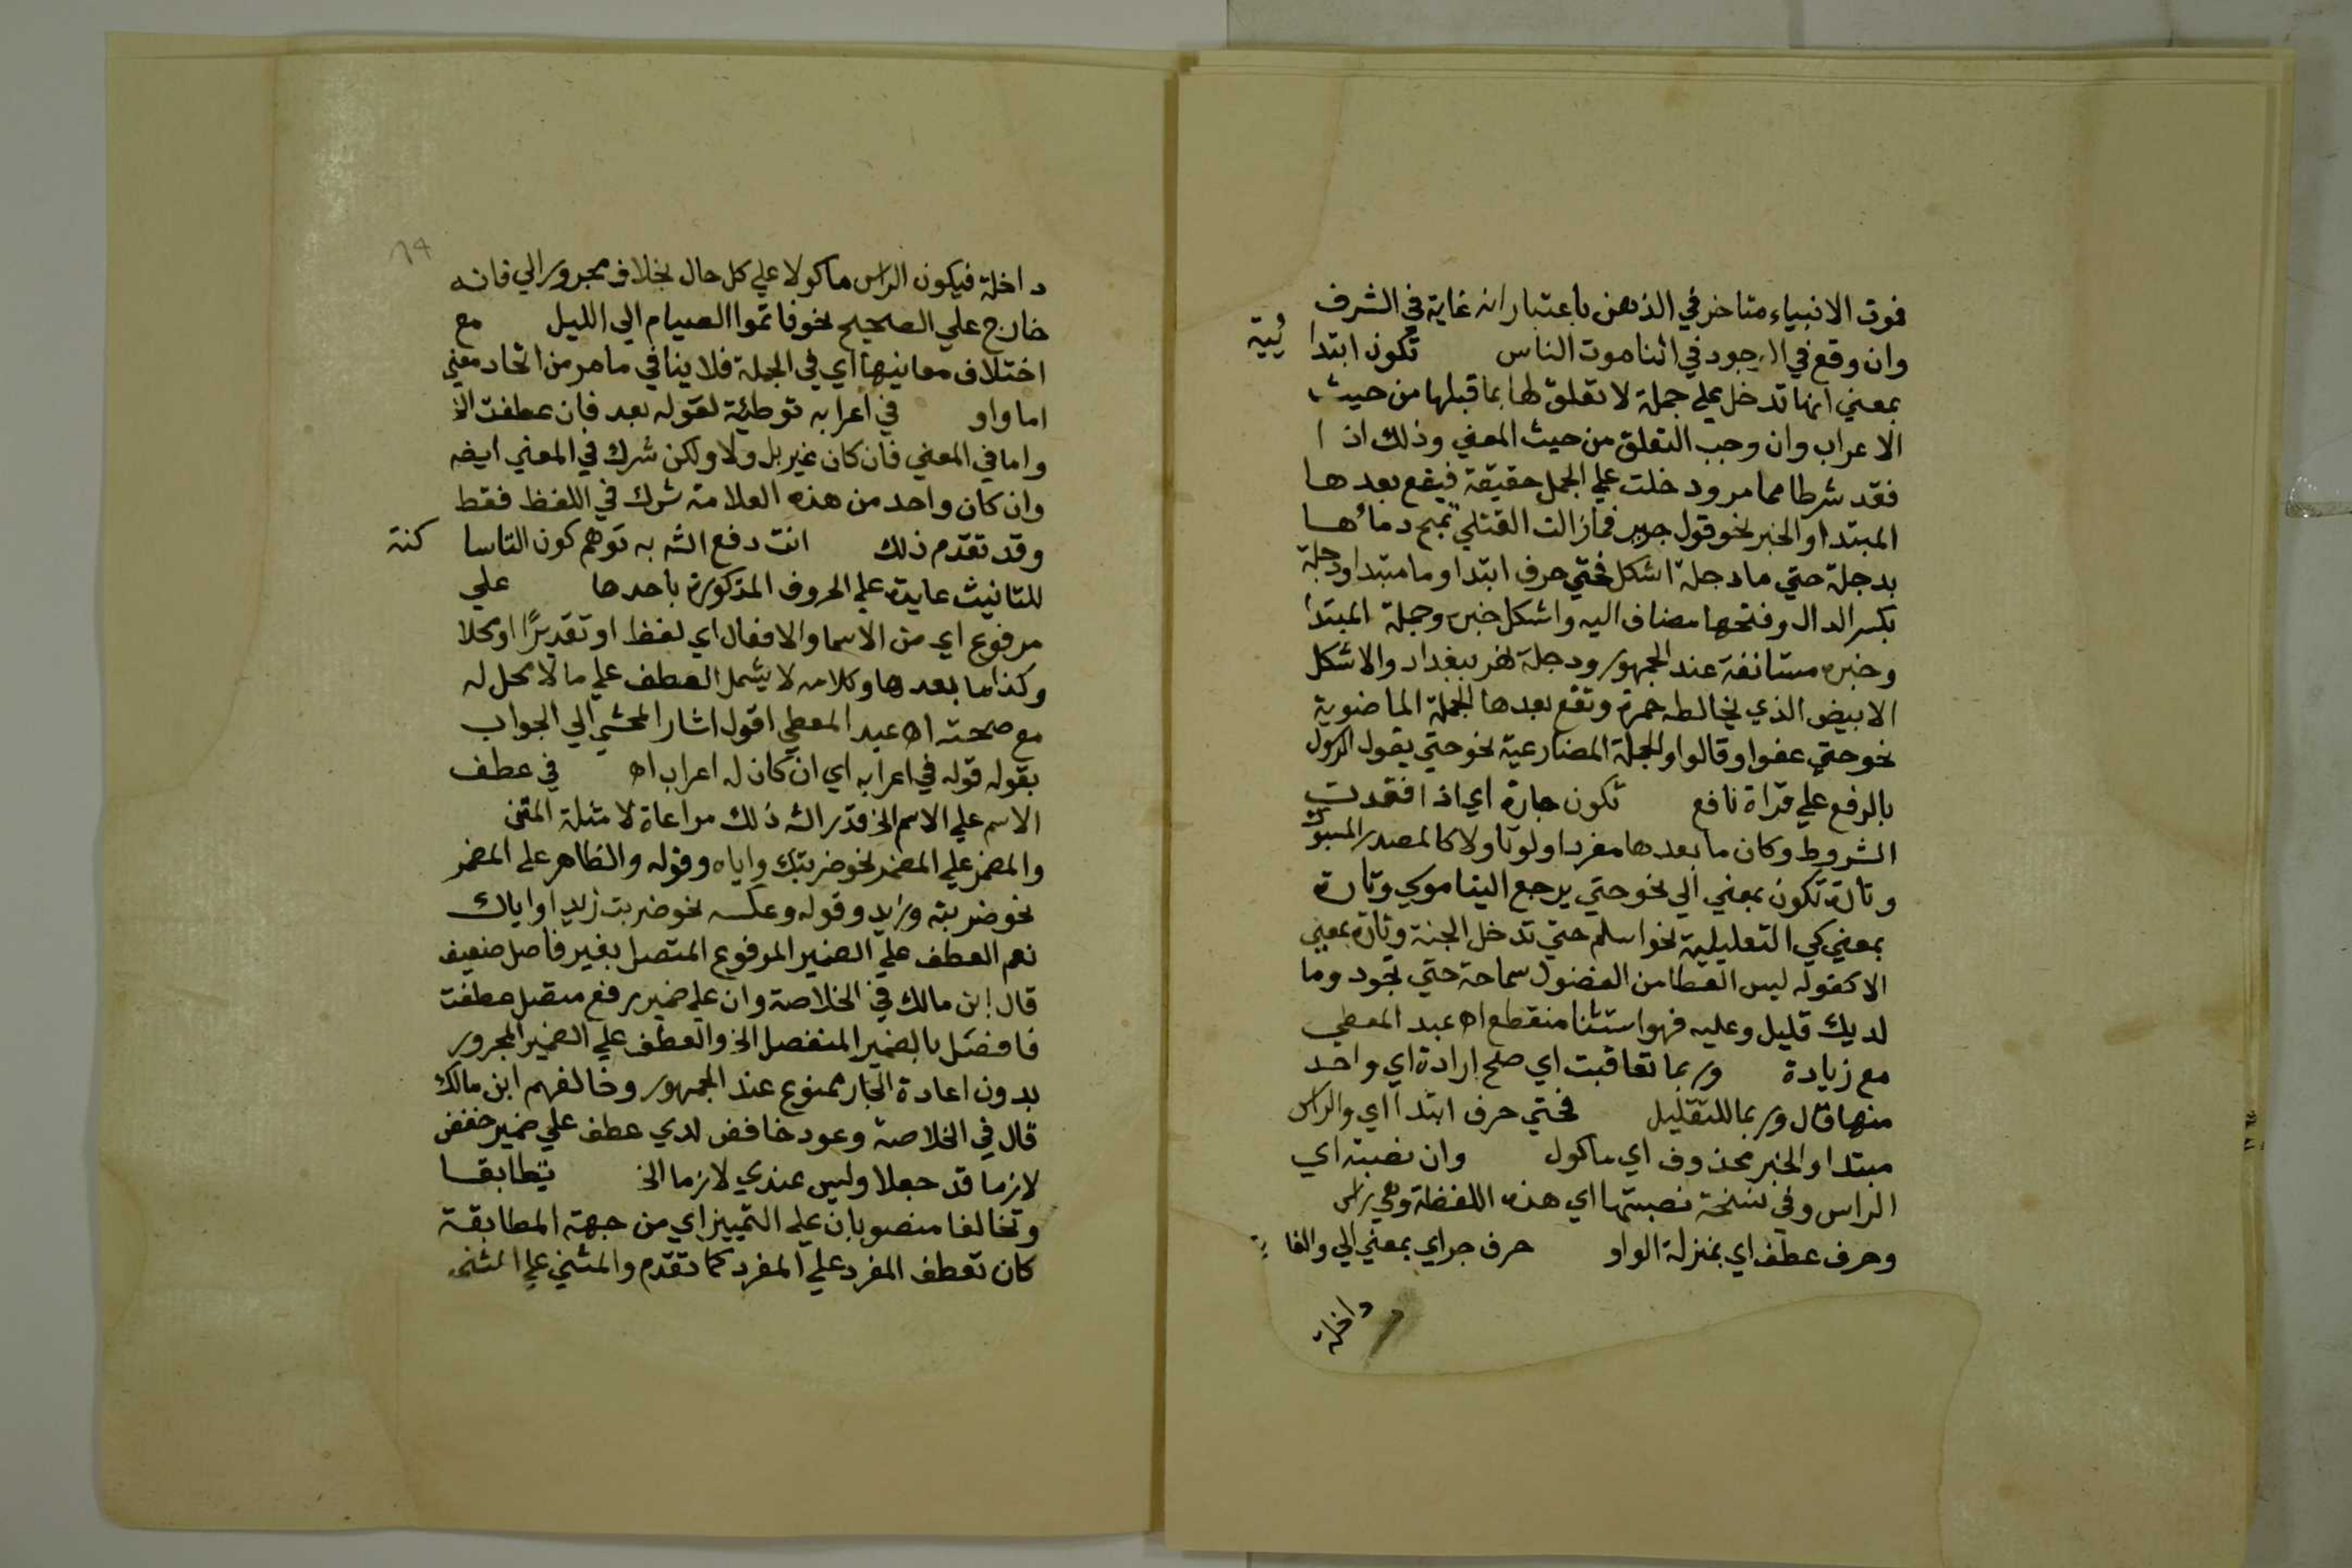 فموت الانبياء متاخر في الذهن باعتبار انه غاية في الشرف
وان وقع في الوجود في اثنا موت الناس تكون ابتدا ئية
بمعني انها تدخل علي جملة لا تعلق لها بما قبلها من حيث
الاعراب وان وجب التعلق من حيث المعني وذلك اذا
فقد شرطا مما مر ودخلت علي الجمل حقيقة فيقع بعدها
المبتدا والخبر نحو قول جرير فما زالت القتلي تمج دماؤها
بدجلة حتي ما دجلة اشكل فحتي حرف ابتدا وما مبتدا ودجلة
بكسر الدال وفتحها مضاف اليه واشكل خبره وجملة المبتدا
وخبره مستانفة عند الجمهور ودجلة نهر ببغداد والاشكل
الابيض الذي يخالطه حمرة وتقع بعدها الجملة الماضوية
نحو حتي عفوا وقالوا والجملة المضارعية نحو حتي يقول الرسول
بالرفع علي قراة نافع تكون جارة اي اذا فقدت
الشروط وكان ما بعدها مفردا ولو تاولا كالمصدر المسبوك
وتارة تكون بمعني الي نحو حتي يرجع الينا موسي وتارة
بمعني كي التعليلية نحو اسلم حتي تدخل الجنة وتارة بمعني
الا كقوله ليس العطا من الفضول سماحة حتي تجود وما
لديك قليل وعليه فهو استثنا منقطع اه عبد المعطي
مع زيادة وربما تعاقبت اي صلح ارادة اي واحد
منها قال وربما للتقليل فحتي حرف ابتدا اي والراس
مبتدا والخبر محذوف اي ماكول وان نصبته اي
الراس وفي نسخة نصبتها اي هذه اللفظة وهي راس
وحرف عطف اي بمنزلة الواو حرف جر اي بمعني الي والغاية
داخلة
٦٩
داخلة فيكون الراس ماكولا علي كل حال بخلاف مجرور الي فانه
خارج علي الصحيح نحو فاتموا الصيام الي الليل مع
اختلاف معانيها اي في الجملة فلا ينافي ما مر من اتحاد معني
اما واو في اعرابه توطئة لقوله بعد فان عطفت الخ
واما في المعني فان كان غير بل ولا ولكن شرك في المعني ايضه
وان كان واحد من هذه العلامة شرك في اللفظ فقط
وقد تقدم ذلك انت دفع الشه به توهم كون التاسا كنة
للتانيث عايدة علي الحروف المذكورة باحدها علي
مرفوع اي من الاسما والافعال اي لفظا او تقديرًا او محلا
وكذا ما بعدها وكلامه لا يشمل العطف علي ما لا محل له
مع صحته اه عبد المعطي اقول اشار المحشي الي الجواب
بقوله قوله في اعرابه اي ان كان له اعراب اه في عطف
الاسم علي الاسم الخ قدر الشه ذلك مراعاة لامثلة المتن
والمضمر علي المضمر نحو ضربتك واياه وقوله والظاهر علي المضمر
نحو ضربته وزيد وقوله وعكسه نحو ضربت زيدا واياك
نعم العطف علي الضمير المرفوع المتصل بغير فاصل ضعيف
قال ابن مالك في الخلاصة وان علي ضمير رفع متصل عطفت
فافصل بالضمير المنفصل الخ والعطف علي الضمير المجرور
بدون اعادة الجار ممنوع عند الجمهور وخالفهم ابن مالك
قال في الخلاصة وعود خافض لدي عطف علي ضمير خفض
لازما قد جعلا وليس عندي لازما الخ تطابقا
وتخالفا منصوبان علي التمييز اي من جهة المطابقة
كان تعطف المفرد علي المفرد كما تقدم والمثني علي المثني